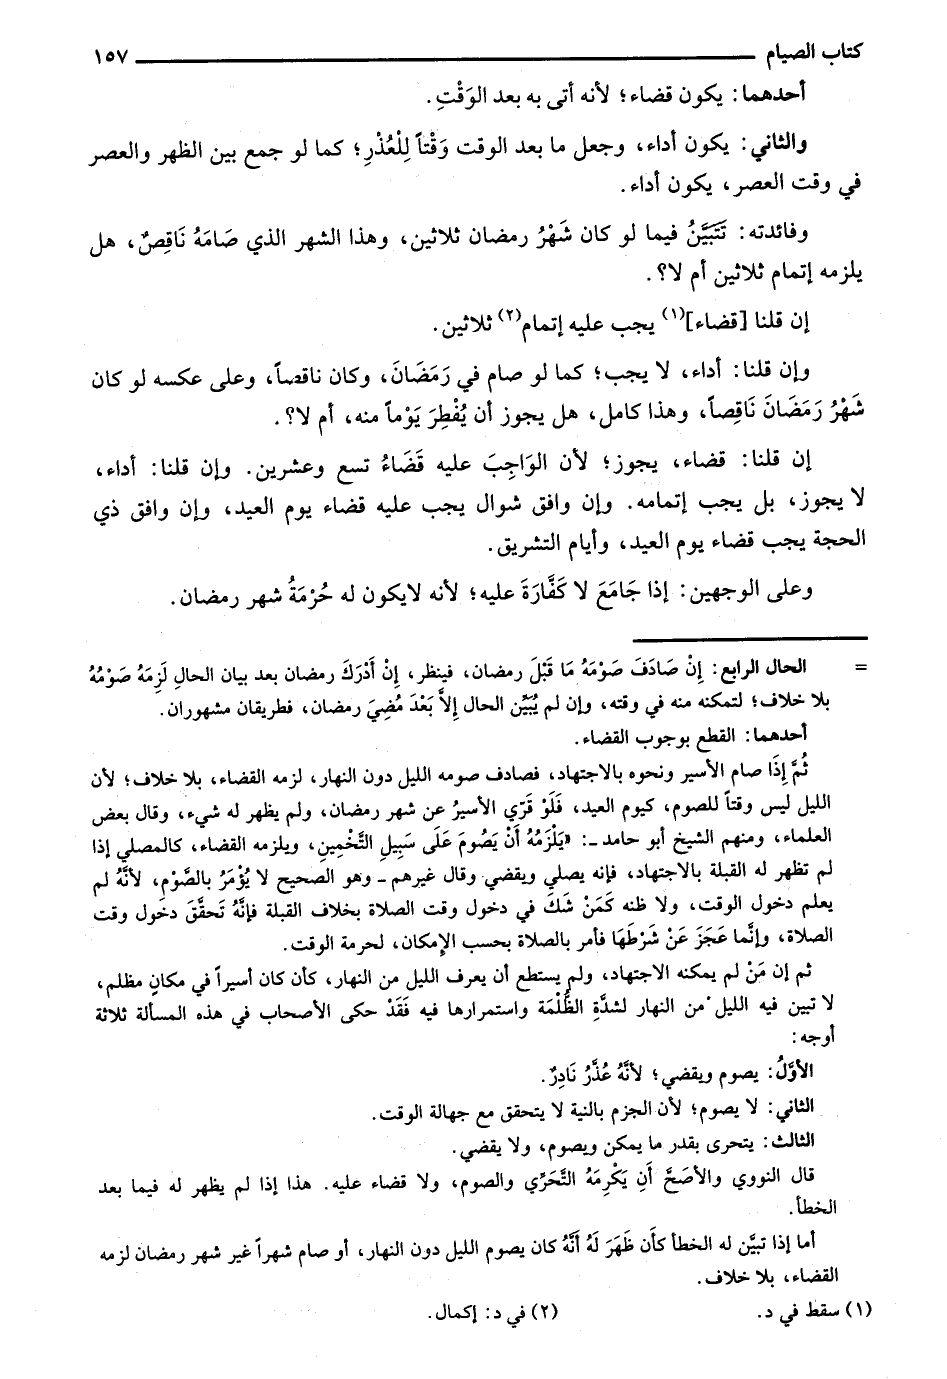 كتاب الصيام ١٥٧
أحدهما: يكون قضاء؛ لأنه أتى به بعد الوَقْتِ.
والثاني: يكون أداء، وجعل ما بعد الوقت وَقْتاً لِلْعُذْرِ؛ كما لو جمع بين الظهر والعصر
في وقت العصر، يكون أداء.
وفائدته: تَتَبَيَّنُ فيما لو كان شَهْرُ رمضان ثلاثين، وهذا الشهر الذي صَامَهُ نَاقِصٌ، هل
يلزمه إتمام ثلاثين أم لا؟.
إن قلنا [قضاء](١) يجب عليه إتمام(٢) ثلاثين.
وإن قلنا: أداء، لا يجب؛ كما لو صام في رَمَضَانَ، وكان ناقصاً، وعلى عكسه لو كان
شَهْرُ رَمَضَانَ نَاقِصاً، وهذا كامل، هل يجوز أن يُفْطِرَ يَوْماً منه، أم لا؟.
إن قلنا: قضاء، يجوز؛ لأن الوَاجِبَ عليه قَضَاءُ تسع وعشرين. وإن قلنا: أداء،
لا يجوز، بل يجب إتمامه. وإن وافق شوال يجب عليه قضاء يوم العيد، وإن وافق ذي
الحجة يجب قضاء يوم العيد، وأيام التشريق.
وعلى الوجهين: إذا جَامَعَ لا كَفَّارَةَ عليه؛ لأنه لايكون له حُرْمَةُ شهر رمضان.
= الحال الرابع: إِنْ صَادَفَ صَوْمَهُ مَا قَبْلَ رمضان، فينظر، إِنْ أَدْرَكَ رمضان بعد بيان الحالِ لَزِمَهُ صَوْمُهُ
بلا خلاف؛ لتمكنه منه في وقته، وإن لم يُبَيِّن الحال إِلاَّ بَعْدَ مُضِيَ رمضان، فطريقان مشهوران.
أحدهما: القطع بوجوب القضاء.
ثُمَّ إِذَا صام الأسير ونحوه بالاجتهاد، فصادف صومه الليل دون النهار، لزمه القضاء، بلا خلاف؛ لأن
الليل ليس وقتاً للصوم، كيوم العيد، فَلَوْ قرِّي الأسيرُ عن شهر رمضان، ولم يظهر له شيء، وقال بعض
العلماء، ومنهم الشيخ أبو حامد ـ: «يَلْزَمُهُ أَنْ يَصُومَ عَلَى سَبِيلِ التَّخْمِينِ، ويلزمه القضاء، كالمصلي إذا
لم تظهر له القبلة بالاجتهاد، فإنه يصلي ويقضي وقال غيرهم ـ وهو الصحيح لا يُؤْمَرُ بالصَّوْمِ، لأنَّهُ لم
يعلم دخول الوقت، ولا ظنه كَمَنْ شَكَ في دخول وقت الصلاة بخلاف القبلة فإنَّهُ تَحقَّقَ دخول وقت
الصلاة، وإنَّما عَجَزَ عَنْ شَرْطَهَا فأمر بالصلاة بحسب الإمكان، لحرمة الوقت.
ثم إن مَنْ لم يمكنه الاجتهاد، ولم يستطع أن يعرف الليل من النهار، كأن كان أسيراً في مكانٍ مظلم،
لا تبين فيه الليل من النهار لشدَّةِ الظُّلْمَة واستمرارها فيه فَقَدْ حكى الأصحاب في هذه المسألة ثلاثة
أوجه:
الأوَّلُ: يصوم ويقضي؛ لأنَّهُ عُذَّرُ نَادِرٌ.
الثاني: لا يصوم؛ لأن الجزم بالنية لا يتحقق مع جهالة الوقت.
الثالث: يتحرى بقدر ما يمكن ويصوم، ولا يقضي.
قال النووي والأصَحَّ أَن يَكْرِمَهُ التَّحَرِّي والصوم، ولا قضاء عليه. هذا إذا لم يظهر له فيما بعد
الخطأ.
أما إذا تبيَّن له الخطأ كأَن ظَهَرَ لَهُ أنَّهُ كان يصوم الليل دون النهار، أو صام شهراً غير شهر رمضان لزمه
القضاء، بلا خلاف.
(١) سقط في د. (٢) في د: إكمال.